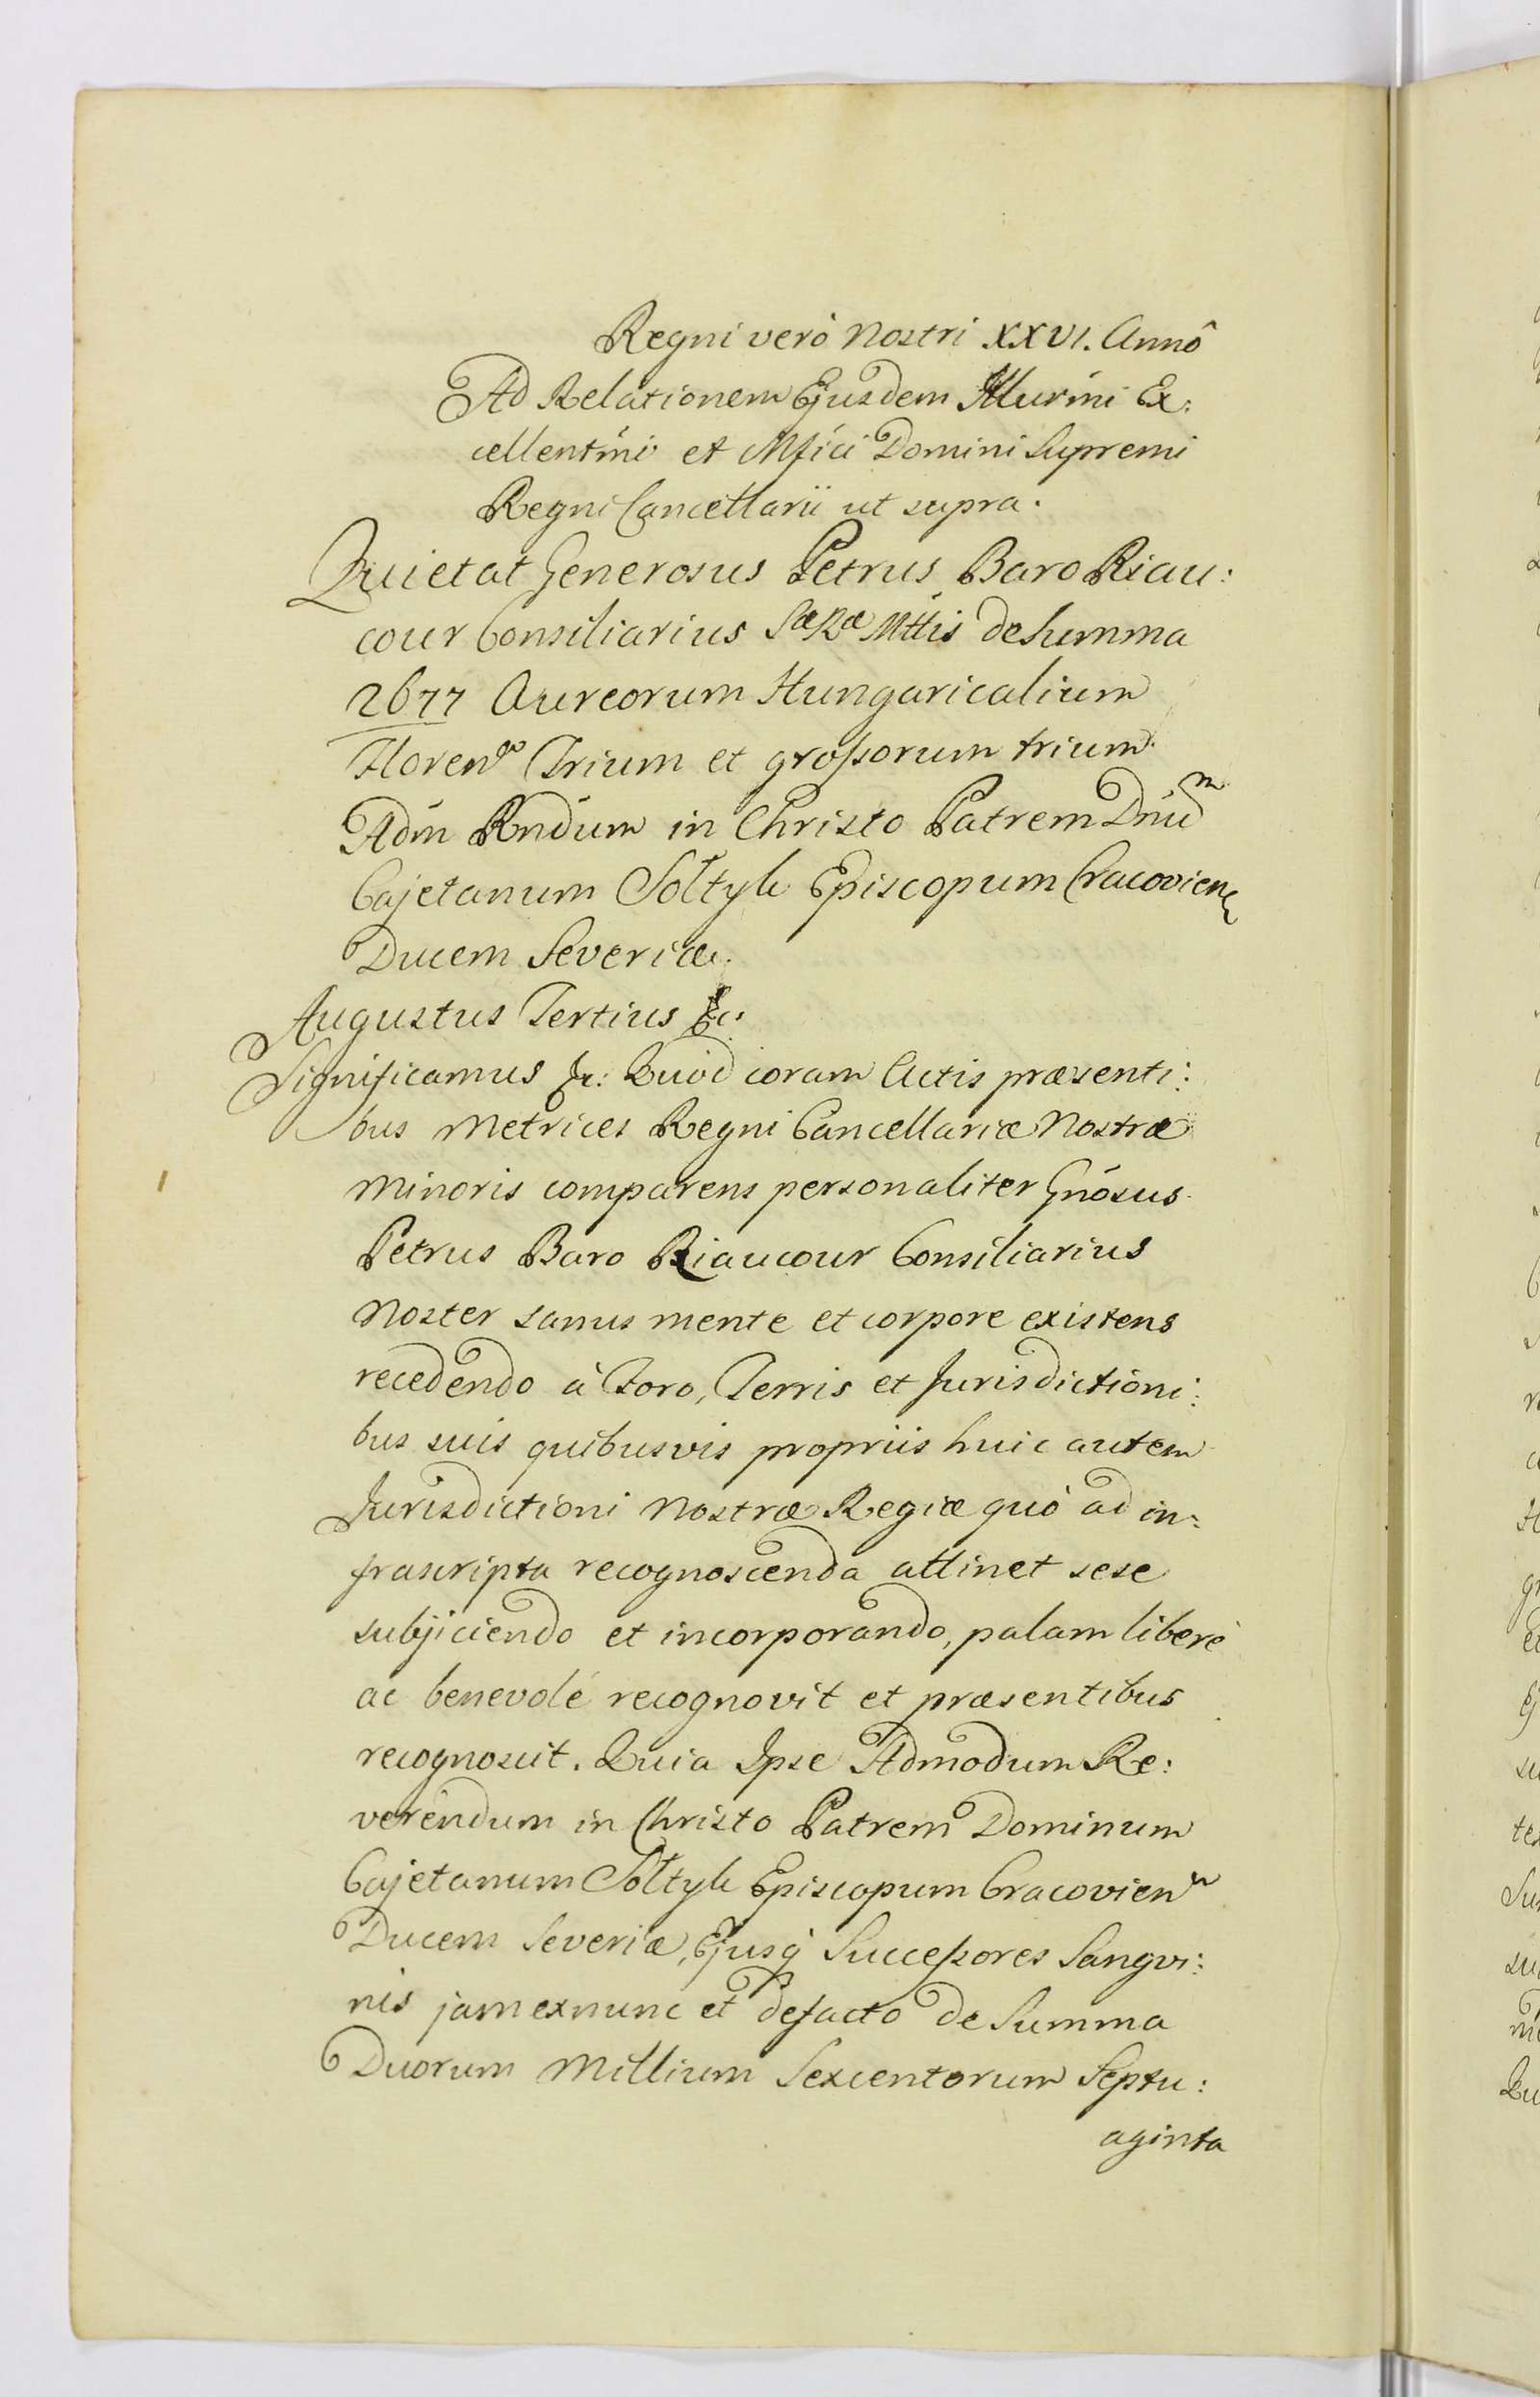 Regni verò Nostri XXVI. Annô
Ad Relationem Ejusdem Illurmi Ex:
cellentmi et Mfici Domini Supremi
Regni Cancellarii ut supra.
Quietat Generosus Petrus Baro Riau:
cour Consiliarius Sae Rae Mttis de summa
2677 Aureorum Hungaricalium
Floren. Trium et grossorum trium
Adm Rndum in Christo Patrem Dnum
Cajetanum Sołtyk Episcopum Cracovien
Ducem Severiæ.
Augustus Tertius &c.
Significamus &c: Quod coram Actis præsenti:
bus Metrices Regni Cancellariæ Nostræ
Minoris comparens personaliter Gnósus
Petrus Baro Riaucour Consiliarius
Noster sanus mente et corpore existens
recedendo à Foro, Terris et Jurisdictioni:
bus suis quibusvis propriis huic autem
Jurisdictioni Nostræ Regiæ quò ad in:
frascripta recognoscenda attinet sese
subjiciendo et incorporando, palam liberè
ac benevolé recognovit et præsentibus
recognoscit. Quia Ipse Admodum Re:
verendum in Christo Patrem Dominum
Cajetanum Sołtyk Episcopum Cracovien
Ducem Severiæ, Ejusq Successores Sangvi:
nis jam exnunc et defacto de Summa
Duorum Millium Sexcentorum Septu:
aginta